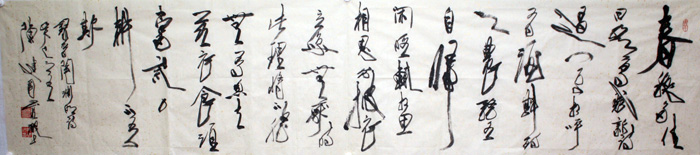 春秋多佳
日登高賦新詩
過門更相呼
有酒斟酌
之農務各
自歸
閒暇輒相思
相思則披衣
言笑無厭時
此理將不勝
無為忽去
茲衣食須
當紀力
耕不吾
欺
陶淵明詩